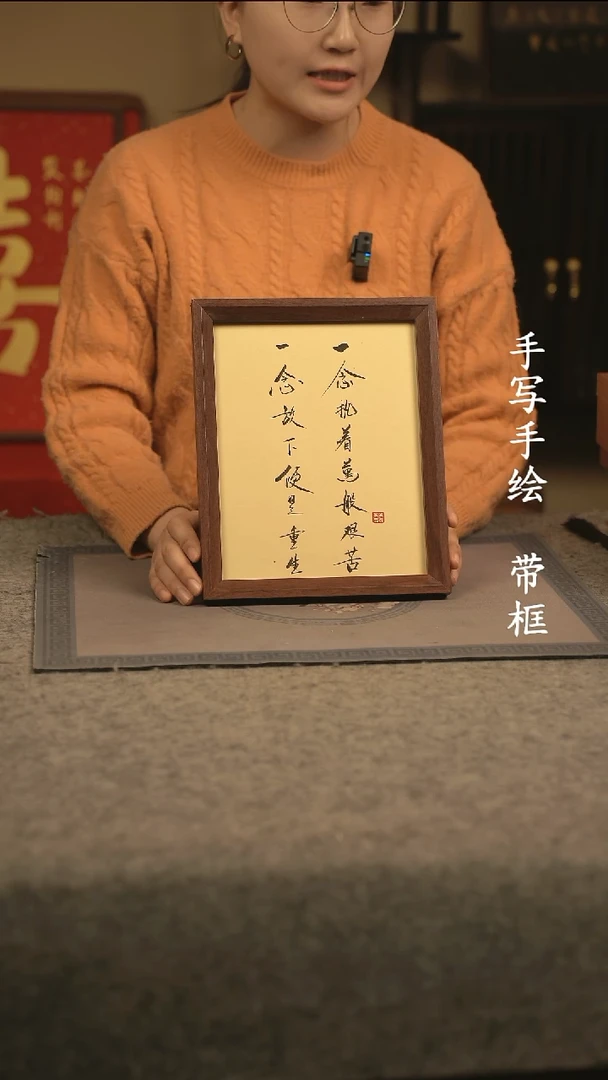 一念执着萬般皆苦
一念放下便是重生
手写手绘 带框